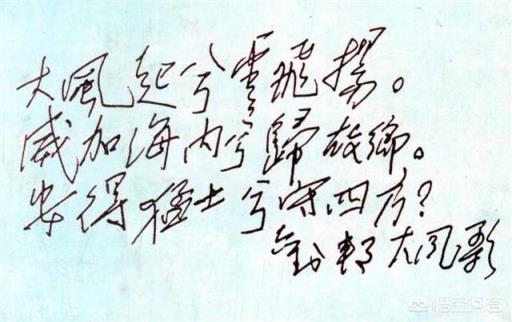 大風起兮雲飛揚。
威加海内兮歸故鄉。
安得猛士兮守四方？
劉邦 大风歌
悟空问答